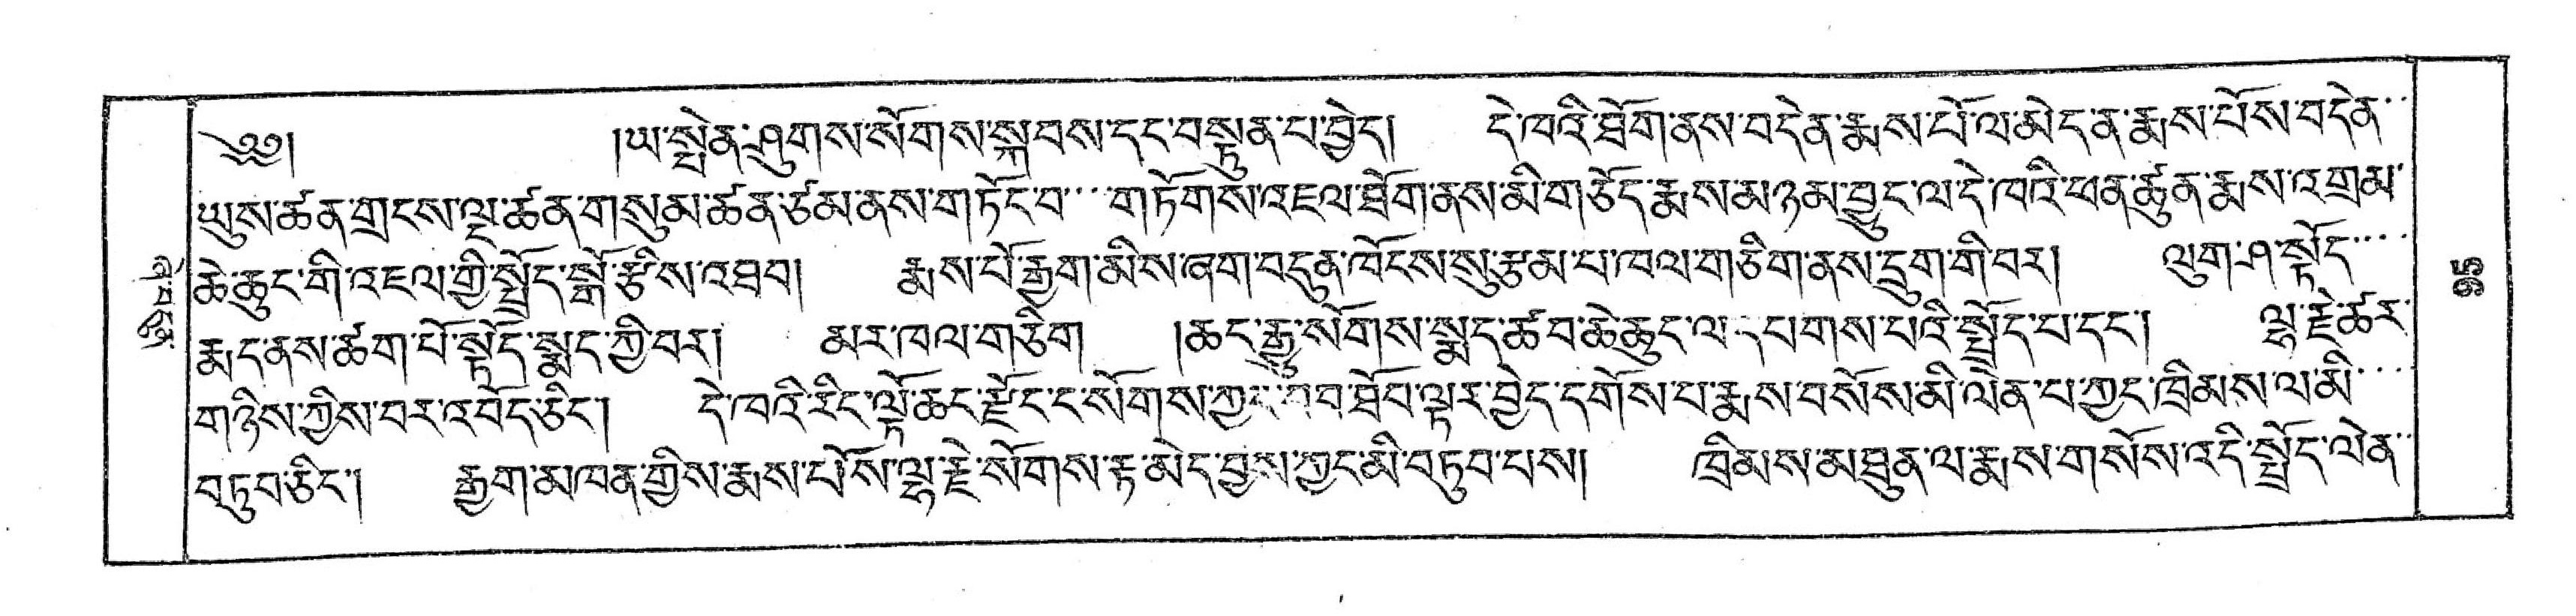 ༄༅། །ཡ་སྤེན་ཤུགས་སོགས་སྐབས་དང་བསྟུན་པ་བྱེད། དེ་ཁའི་ཐོག་ནས་བདེན་རྨས་པོ་ལ་མེད་ན་རྨས་པོས་བདེན་
ཡུས་ཚན་གྲངས་ལྔ་ཚན་གསུམ་ཚན་ཙམ་ནས་གཏོང་བ་གཏོགས་འཇལ་ཐོག་ནས་མི་གཅོད་རྨས་མ་ཉམ་བྱུང་ལ་དེ་ཁའི་ཕན་ཚུན་རྨས་འགྲམ་
ཆེ་ཆུང་གི་འཇལ་གྱི་སྤྲོད་སྒོ་རྩིས་འཐབ། རྨས་པོ་རྒྱག་མིས་ཞག་བདུན་ཁོངས་སུ་རྩམ་པ་ཁལ་གཅིག་ནས་དྲུག་གི་བར། ལུག་ཤ་སྟོད་
རྨད་ནས་ཚག་པོ་སྟོད་སྨད་ཀྱི་བར། མར་ཁལ་གཅིག །ཆང་རྒྱུ་སོགས་སྨད་ཚབ་ཆེ་ཆུང་ལ་དཔགས་པའི་སྤྲོད་པ་དང་། ལྷ་རྗེ་ཚར་
གཉིས་ཀྱིས་བར་འབོད་ཅིང་། དེ་ཁའི་རིང་ལྟོ་ཆང་རྫོང་ང་སོགས་ཀྱང་ཐོབ་ལྟར་བྱེད་དགོས་པ་རྨས་བསོས་མི་ལེན་པ་ཀྱང་ཁྲིམས་ལ་མི་
བཏུབ་ཅིང་། རྒྱག་མཁན་གྱིས་རྨས་པོས་ལྷ་རྗེ་སོགས་རྟ་མེད་བྱས་ཀྱང་མི་བཏུབ་པས། ཁྲིམས་མཐུན་ལ་རྨས་གསོས་འདི་སྤྲོད་ལེན་